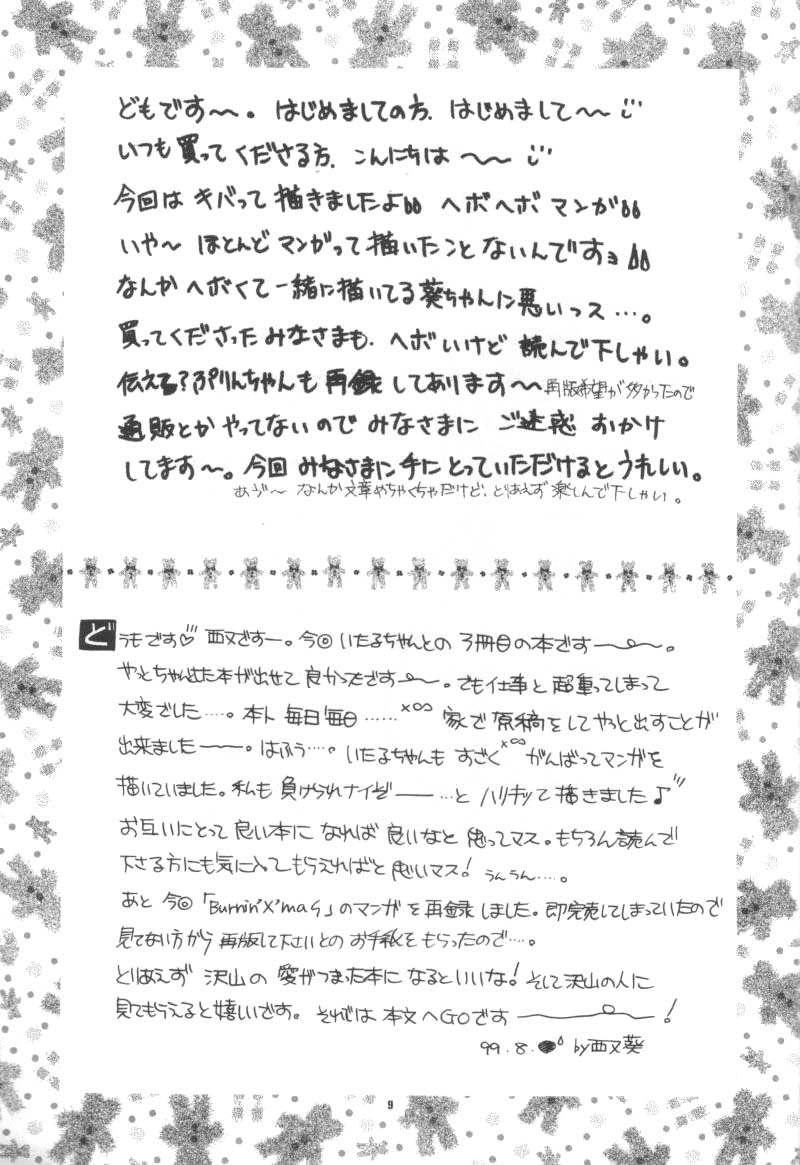 どもです〜〜。はじめましての方、はじめまして〜〜
いつも買ってくださる方、こんにちは〜〜
今回は キバって 描きましたよ ヘボヘボ マンガ
いや〜 ほとんど マンガって描いたこと ないんですョ
なんか ヘボくて 一緒に描いてる 葵ちゃんに 悪いっス…。
買ってくださった みなさまも、ヘボいけど 読んで下しゃい。
伝える?ぷりんちゃんも 再録 してあります〜 再版希望が多かったので
通販とか やってないので みなさまに ご迷惑 おかけ
してます〜。今回 みなさまに手にとっていただけるとうれしい。
あぅ〜 なんか文章めちゃくちゃだけど、とりあえず 楽しんで下しゃい。
どうもです♡ 西又ですー。今回 いたるちゃんとの 3冊目の本です――。
やっとちゃんとした本が出せて 良かったです――。でも仕事と 超重ってしまって
大変でした…。本人 毎日毎日…… 家で 原稿をしてやっと出すことが
出来ました――。はふぅ…。いたるちゃんも すごく がんばってマンガを
描いていました。私も 負けられナイぞ――…と ハリキッて 描きました♪
お互いにとって 良い本に なれば 良いなと 思ってマス。もちろん読んで
下さる方にも気に入ってもらえればと 思いマス! うんうん…。
あと 今回「Burnin'X'mas」のマンガを再録しました。即完売してしまっていたので
見てない方から 再版して下さいとの お手紙を もらったので…。
とりあえず 沢山の 愛がつまった本に なるといいな! そして沢山の人に
見てもらえると 嬉しいです。それでは 本文へGOです――!
99.8. by西又葵
9